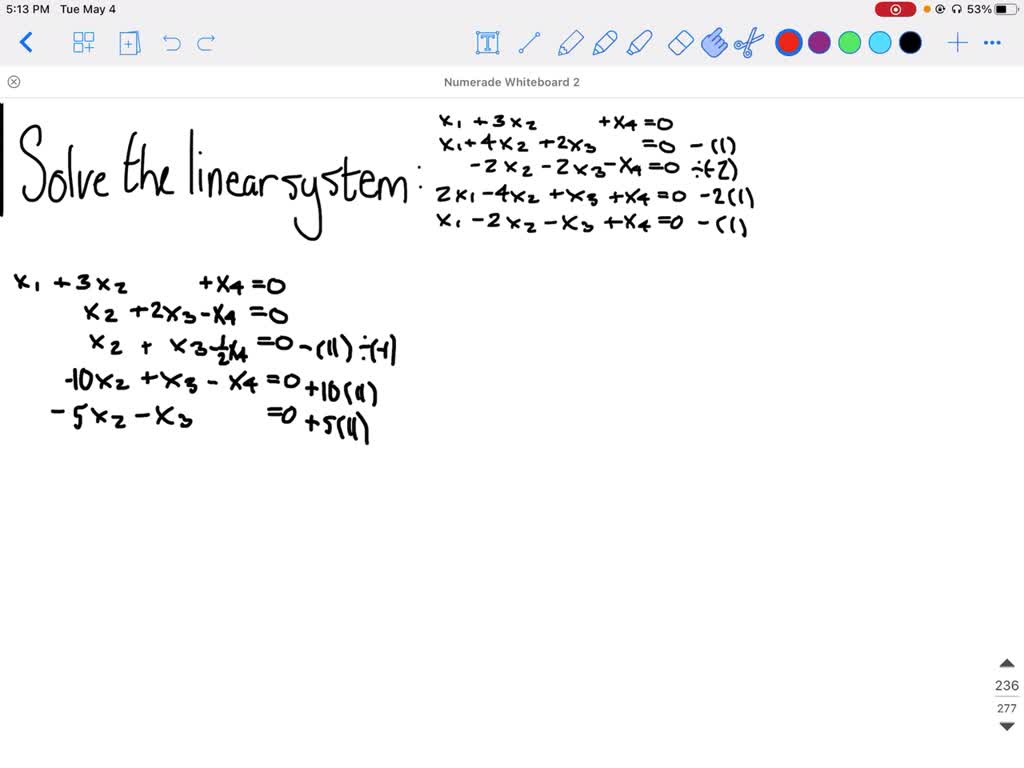 5:13 PM Tue May 4
53%
Numerade Whiteboard 2
Solve the linear system:
x₁ + 3x₂ + x₄ = 0
x₁ + 4x₂ + 2x₃ = 0 - (1)
-2x₂ - 2x₃ - x₄ = 0 ÷(-2)
2x₁ - 4x₂ + x₃ + x₄ = 0 - 2(1)
x₁ - 2x₂ - x₃ + x₄ = 0 - (1)
x₁ + 3x₂ + x₄ = 0
x₂ + 2x₃ - x₄ = 0
x₂ + x₃ ½x₄ = 0 - (11) ÷(-1)
-10x₂ + x₃ - x₄ = 0 + 10(11)
-5x₂ - x₃ = 0 + 5(11)
236
277